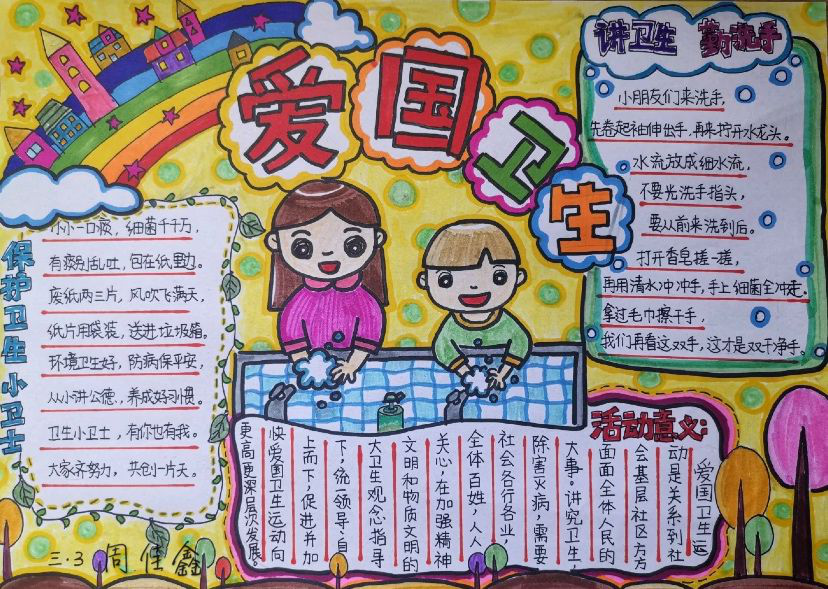 爱国卫生
讲卫生 勤洗手
小朋友们来洗手，
先卷起袖伸出手，再来拧开水龙头。
水流放成细水流，
不要光洗手指头，
要从前来洗到后。
打开香皂搓一搓，
再用清水冲冲手，手上细菌全冲走。
拿过毛巾擦干手，
我们再看这双手，这才是双干净手。
保护卫生小卫士
小小一口痰，细菌千千万，
有痰别乱吐，包在纸里边。
废纸两三片，风吹飞满天，
纸片用袋装，送进垃圾箱。
环境卫生好，防病保平安，
从小讲公德，养成好习惯。
卫生小卫士，有你也有我。
大家齐努力，共创一片天。
活动意义：
爱国卫生运
动是关系到社
会基层社区方方
面面全体人民的
大事。讲究卫生，
除害灭病，需要
社会各行各业，
全体百姓，人人
关心，在加强精神
文明和物质文明的
大卫生观念指导
下，统一领导，自
上而下，促进并加
快爱国卫生运动向
更高更深层次发展。
三·3 周佳鑫